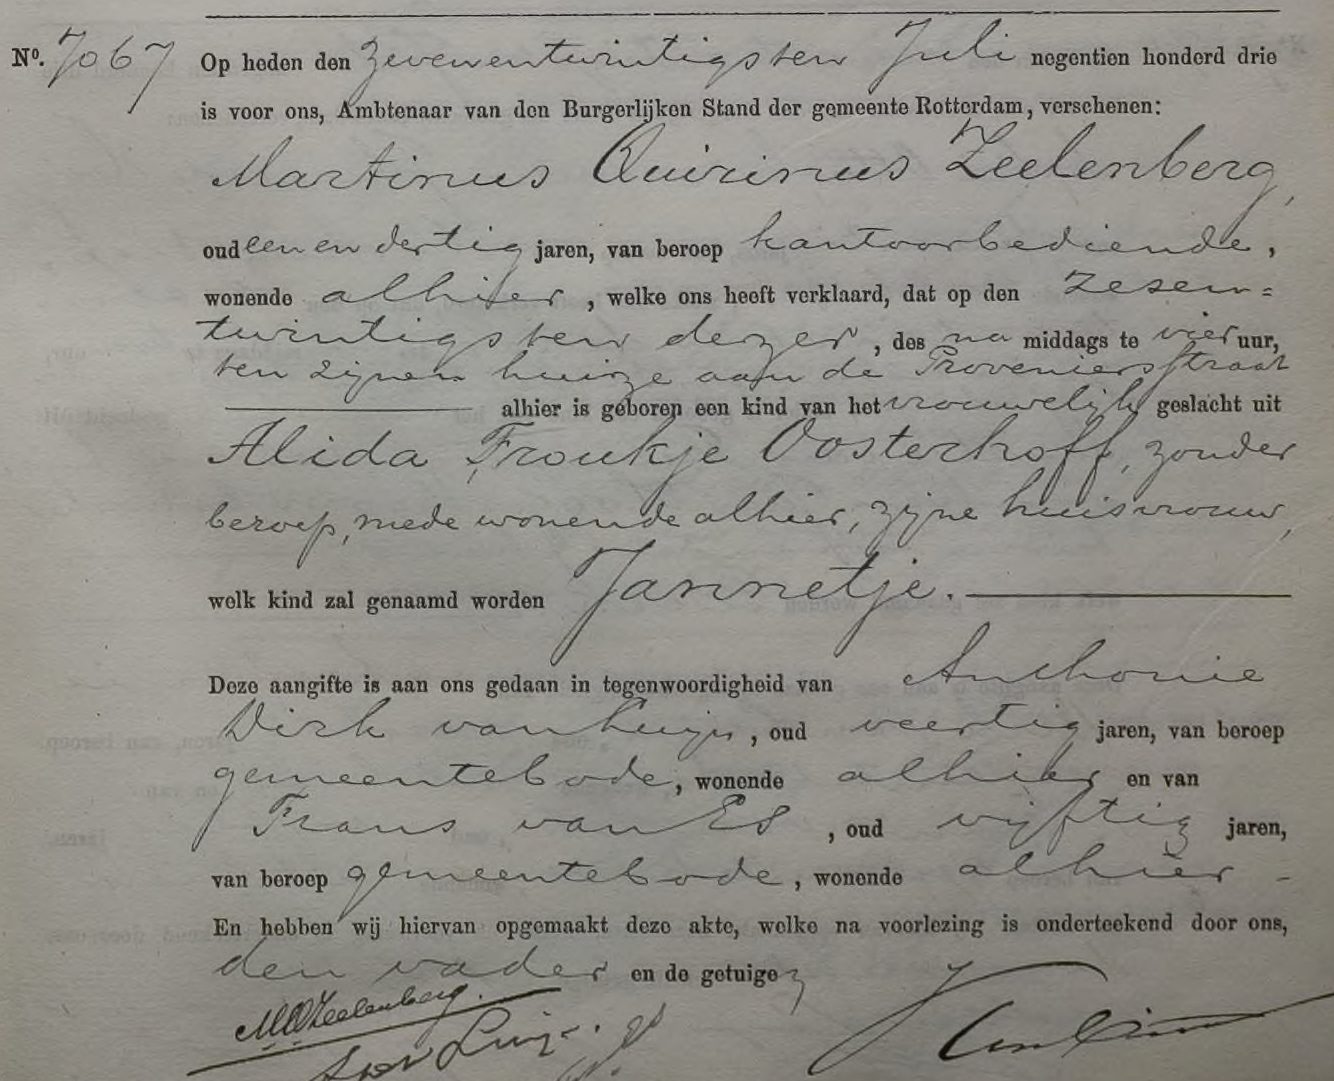 Nº. 7067 Op heden den zevenentwintigsten Juli negentien honderd drie
is voor ons, Ambtenaar van den Burgerlijken Stand der gemeente Rotterdam, verschenen:
Martinus Quirinus Zeelenberg,
oud een en dertig jaren, van beroep kantoorbediende,
wonende alhier, welke ons heeft verklaard, dat op den zesen=
twintigsten dezer, des na middags te vier uur,
ten zijnen huize aan de Proveniersstraat
alhier is geboren een kind van het vrouwelijk geslacht uit
Alida Froukje Oosterhoff, zonder
beroep, mede wonende alhier, zijne huisvrouw,
welk kind zal genaamd worden Jannetje.
Deze aangifte is aan ons gedaan in tegenwoordigheid van Anthonie
Dirk van Luijn, oud veertig jaren, van beroep
gemeentebode, wonende alhier en van
Frans van Es, oud vijftig jaren,
van beroep gemeentebode, wonende alhier -
En hebben wij hiervan opgemaakt deze akte, welke na voorlezing is onderteekend door ons,
den vader en de getuigez
MQZeelenberg.